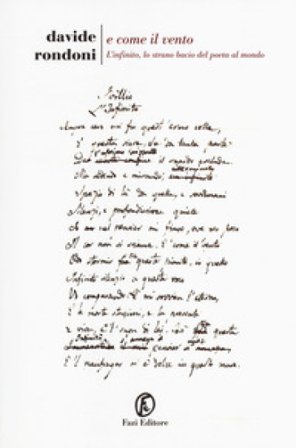 davide
rondoni
e come il vento
L'infinito, lo strano bacio del poeta al mondo
Idillio
L'Infinito
Sempre caro mi fu quest'ermo colle,
E questa siepe, che da tanta parte
il guardo esclude.
Ma sedendo e mirando,
Spazio di là da quella, e sovrumani
Silenzi, e profondissima quiete
Io nel pensier mi fingo, ove per poco
Il cor non si spaura. E come il vento
Odo stormir tra queste piante, io quello
Infinito silenzio a questa voce
Vo comparando: e mi sovvien l'eterno,
E le morte stagioni, e la presente
E viva, e 'l suon di lei. Così tra questa
E 'l naufragar m'è dolce in questo mare.
Fazi Editore